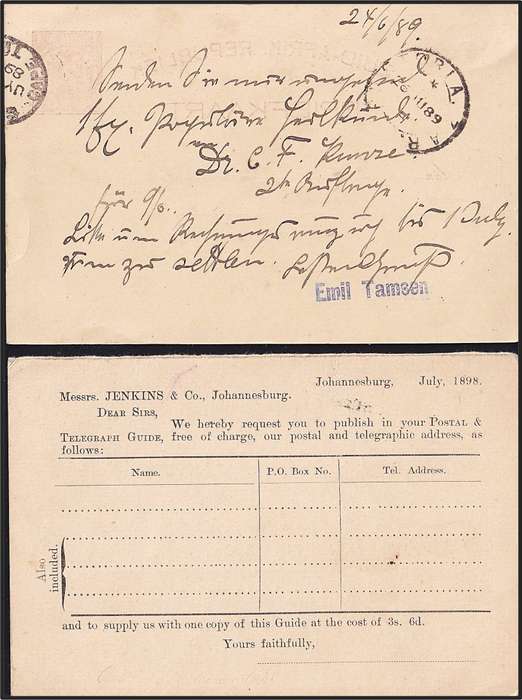 24/6/89.
Senden Sie mir umgehend
1 Ex. Populäre Heilkunde
von
Dr. C. F. Kunze
2te Auflage.
für
Bitte um Rechnung bis 1 July.
Emil Tamsen
Johannesburg, July, 1898.
Messrs. JENKINS & Co., Johannesburg.
DEAR SIRS,
We hereby request you to publish in your POSTAL &
TELEGRAPH GUIDE, free of charge, our postal and telegraphic address, as
follows:
Name. P.O. Box No. Tel. Address.
Also
included.
and to supply us with one copy of this Guide at the cost of 3s. 6d.
Yours faithfully,